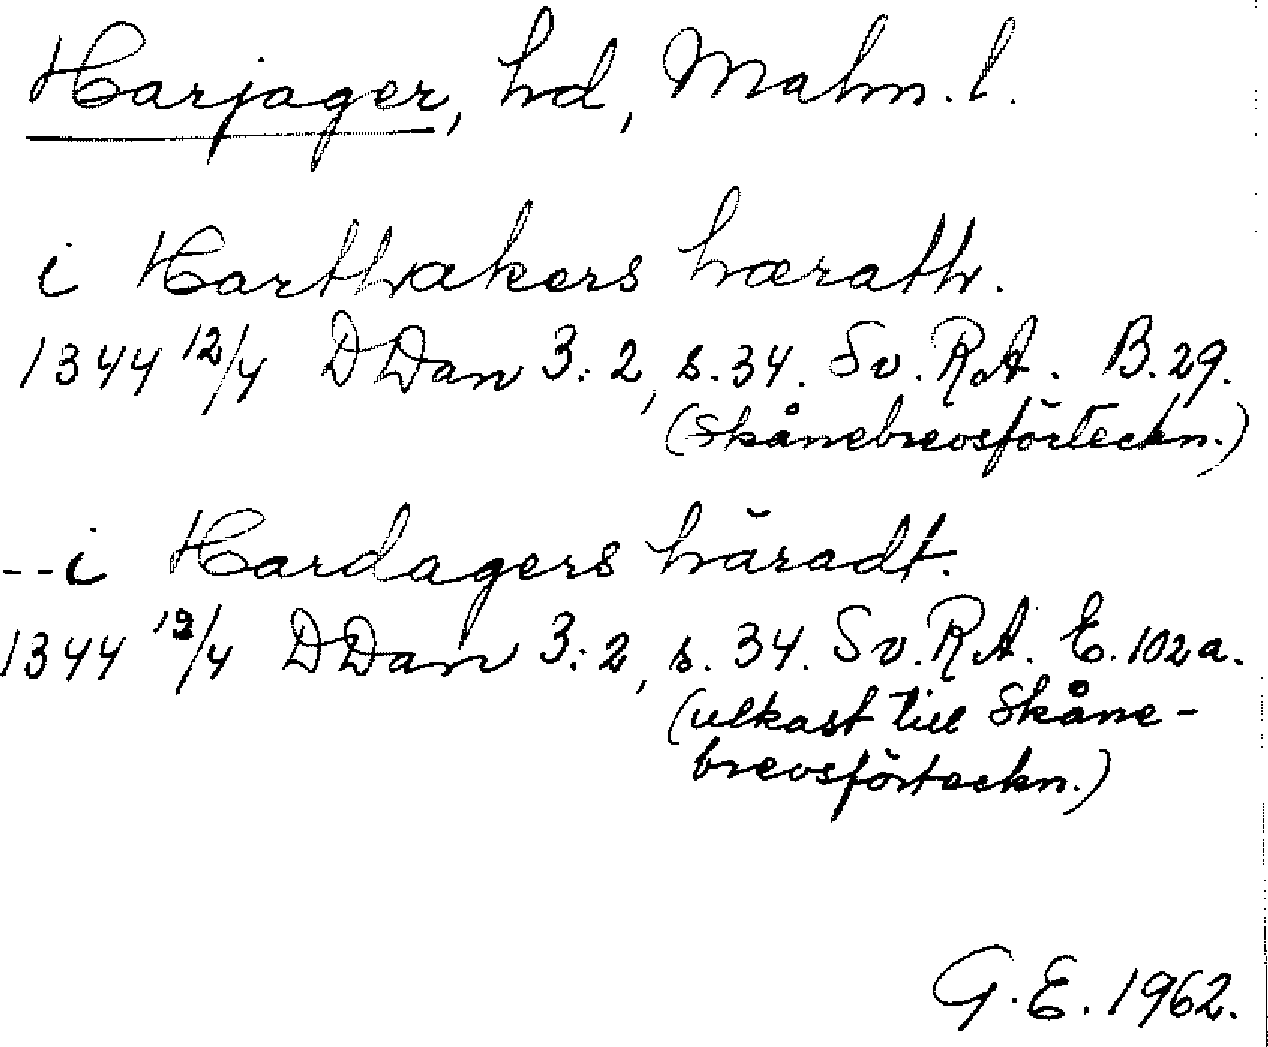 Harjager, hd, Malm. l.
i Harthakers hærath.
1344 12/4 DDan 3:2, s. 34. Sv. RA. B.29.
(Skånebrevsförteckn.)
--i Hardagers häradt.
1344 12/4 DDan 3:2, s. 34. Sv. RA. E.102a.
(utkast till Skåne-
brevsförteckn.)
G.E. 1962.